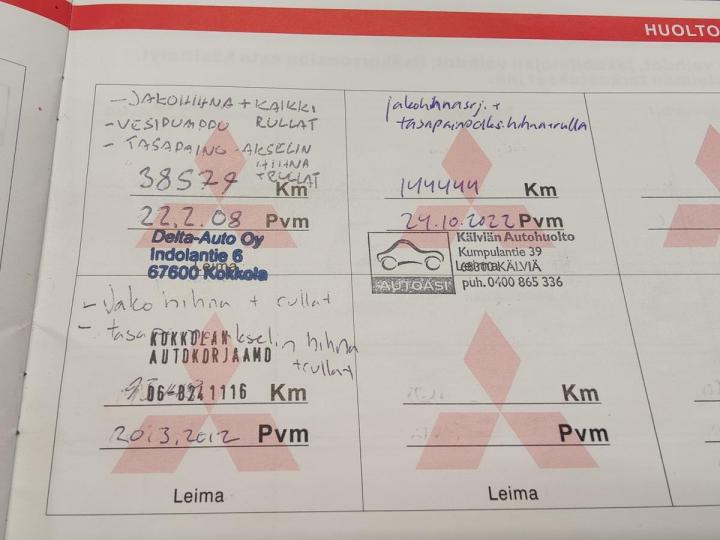 HUOLTO
- JAKOHIHNA + KAIKKI
- VESIPUMPPU RULLAT
- TASAPAINO AKSELIN
HIHNA
+ RULLAT
38579 Km
22.2.08 Pvm
Delta-Auto Oy
Indolantie 6
67600 Kokkola
Leima
jakohihnasrj. +
tasapainoaks.hihna+rulla
144444 Km
24.10.2022 Pvm
Kälviän Autohuolto
Kumpulantie 39
68300 KÄLVIÄ
Leima
puh. 0400 865 336
AUTOASI
- Jakohihna + rullat
- tasapainoakselin hihna
+rullat
KOKKOLAN
AUTOKORJAAMO
06-8241116 Km
20.3.2012 Pvm
Leima
Km
Pvm
Leima